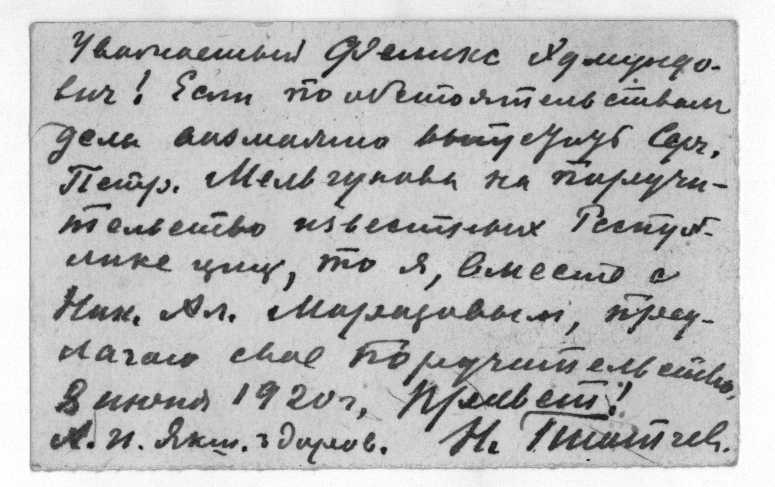 Уважаемый Феликс Эдмундо-
вич! Если по обстоятельствам
дела возможно выпустить Серг.
Петр. Мельгунова на поручи-
тельство известных Респуб-
лике лиц, то я, вместе с
Ник. Ал. Морозовым, пред-
лагаю свое поручительство.
8 июня 1920 г. Привет!
А. И. Якш. здоров. Н.